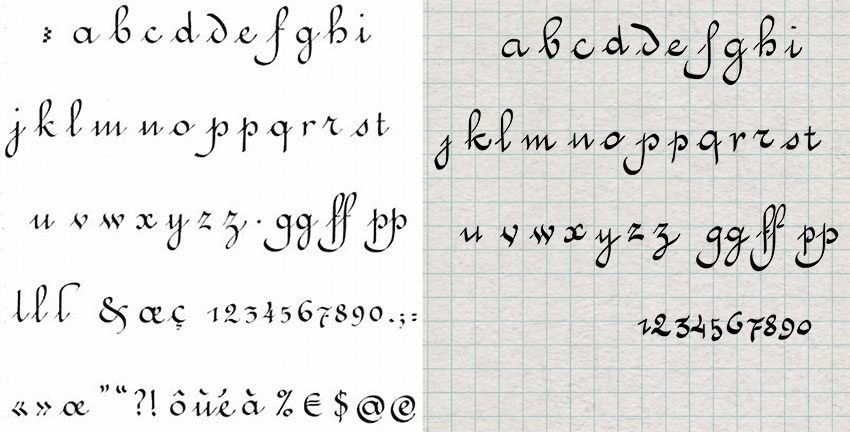 : a b c d d e f g h i
j k l m n o p p q r r s t
u v w x y z z . gg ff pp
l l l & æ ç 1234567890.;:
«» œ ”“ ?! ô ù é à % € $ @ @
a b c d d e f g h i
j k l m n o p p q r r s t
u v w x y z z gg ff pp
1234567890